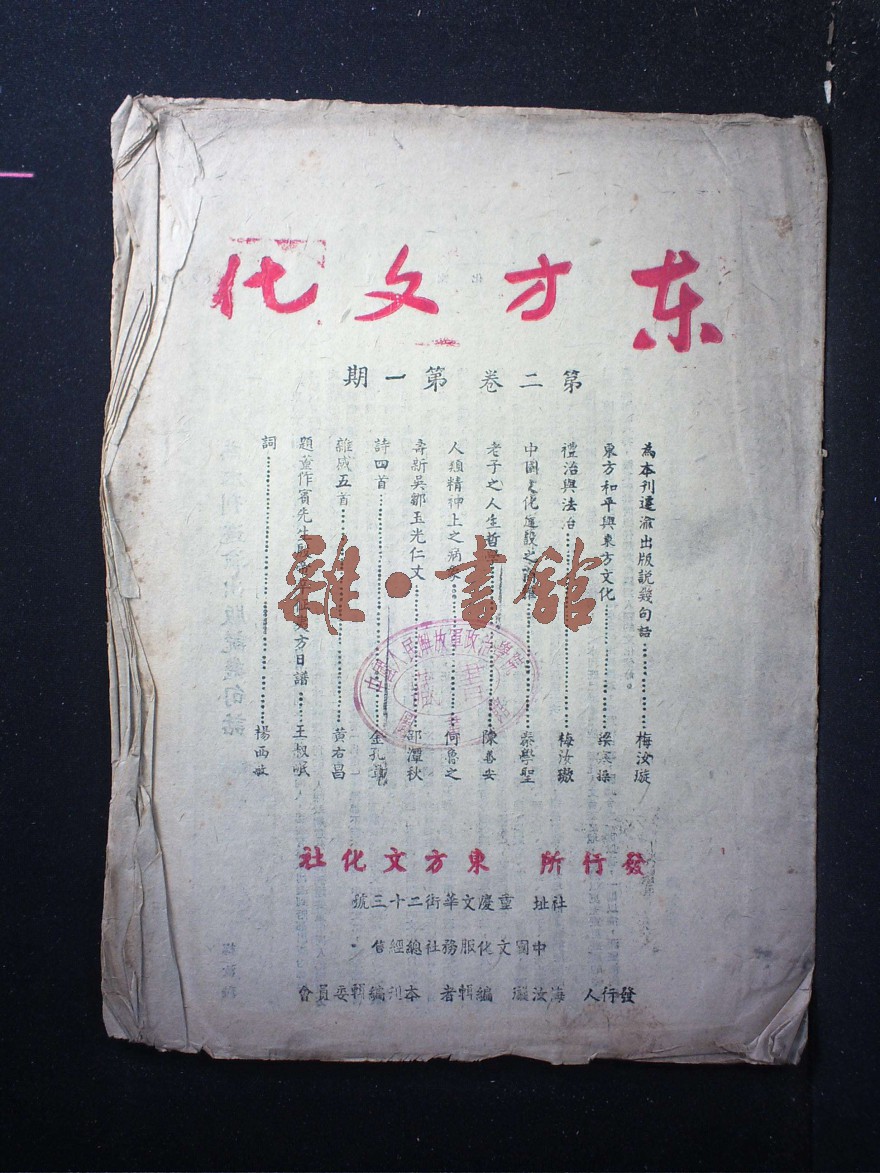 东方文化
第二卷 第一期
為本刊遷渝出版說幾句話 梅汝璇
東方和平與東方文化
禮治與法治 梅汝璈
中國文化建設之 學聖
老子之人生哲 陳善安
人類精神上之病 何魯之
壽新吳鄒玉光仁丈 邵潭秋
詩四首
雜感五首 黃右昌
題董作賓先生 方日譜 王叔岷
詞 楊西
雜·書館
中國人民解放軍政治學院
藏書
發行所 東方文化社
社址 重慶文華街二十三號
中國文化服務社總經售
發行人 梅汝璇 編輯者 本刊編輯委員會